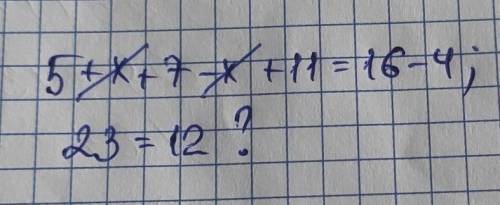 5+x+7-x+11=16-4;
23=12?